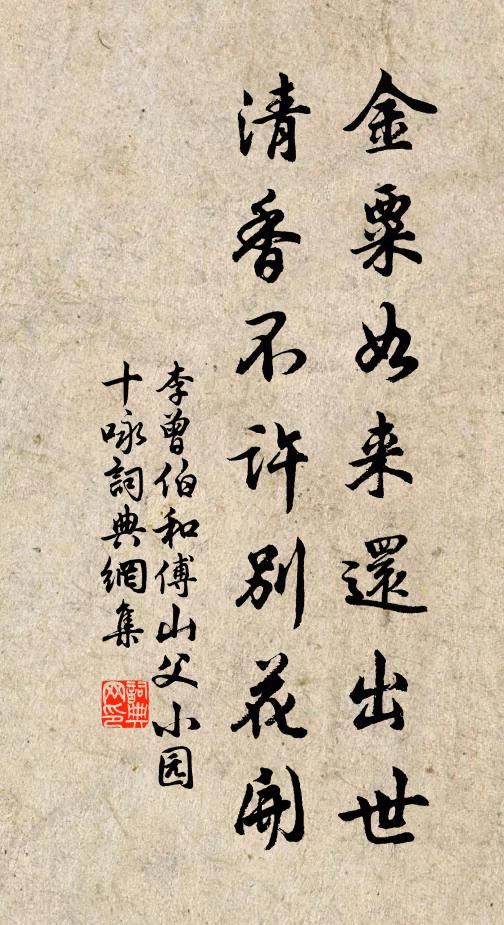 金粟如来還出世
清香不許別花開
李曾伯和傅山父小园
十咏詞典網集
詞典网印